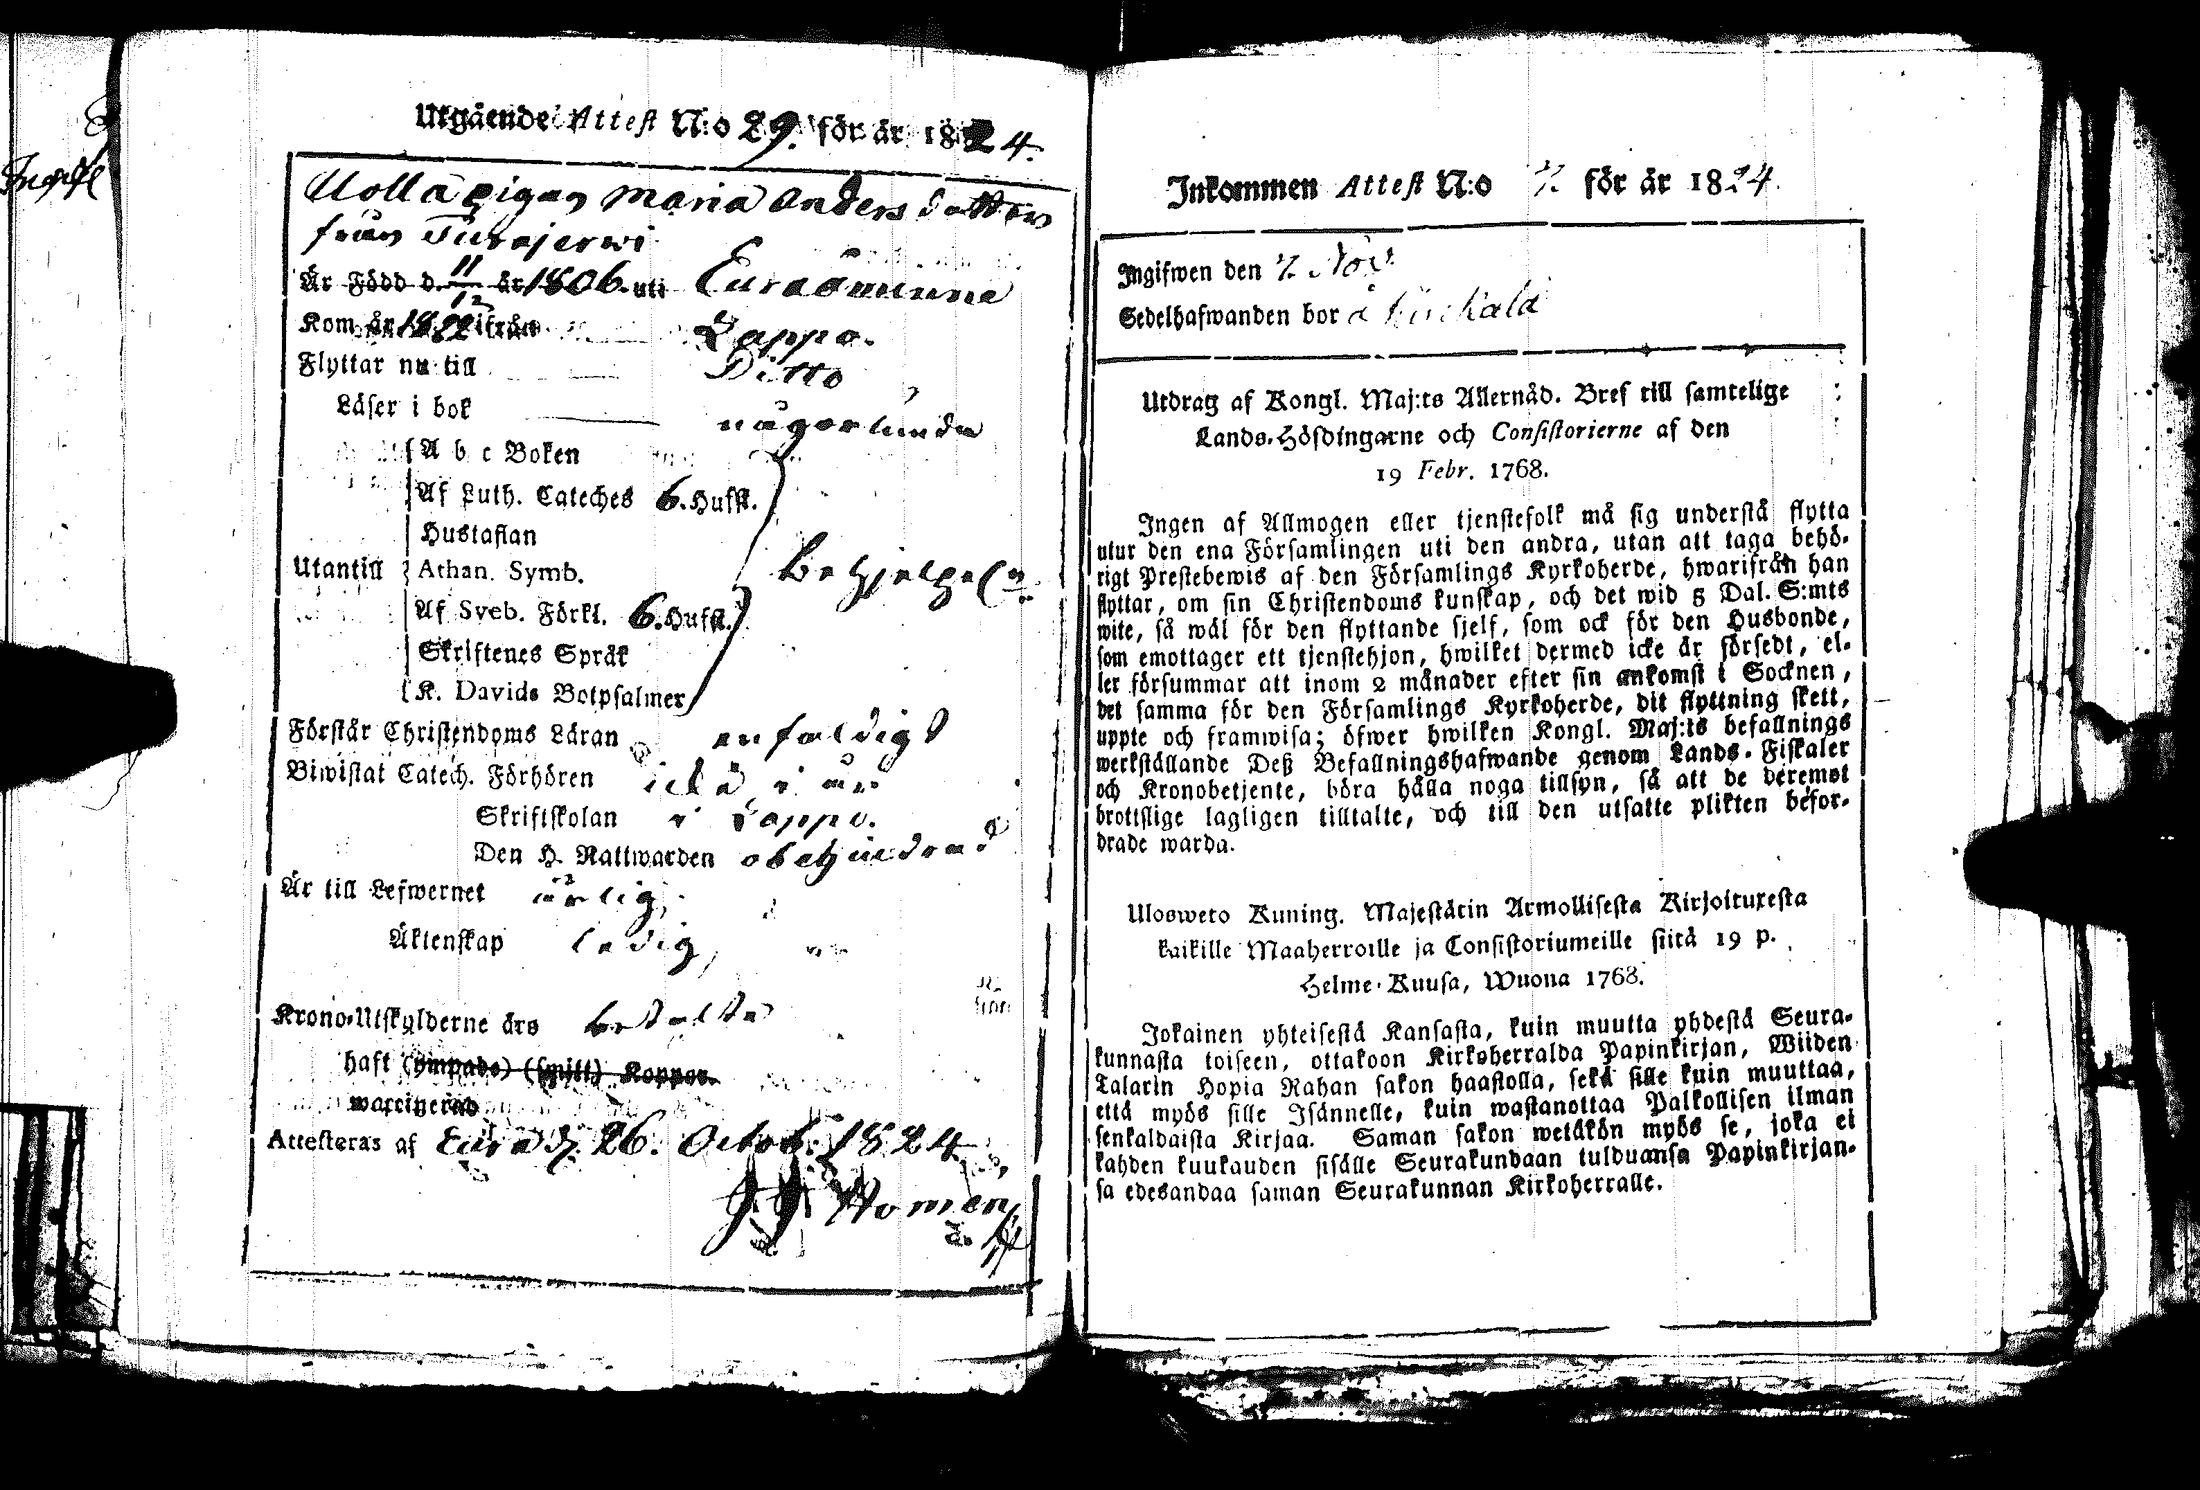 Utgående Attest N:o 29. för år 1824.
Uolla pigan Maria Anders dotter
från Turajerwi
Är Född d. 11/12 år 1806. uti Euraåminne
Kom år 1822 ifrån Lappo.
Flyttar nu till Ditto
Läser i bok någorlunda
A b c Boken
Af Luth. Cateches 6. Hufst.
Hustaflan
Utantill Athan. Symb. Behjelpel:n
Af Sveb. Förkl. 6. Hufst.
Skriftenes Språk
K. Davids Botpsalmer
Förstår Christendoms Läran enfaldigt
Biwistat Catech. Förhören icke i år
Skriftskolan i Lappo.
Den H. Nattwarden obehindrad
Är till Lefwernet ärlig,
Äktenskap ledig,
Krono-Utskylderne års betalte
haft (ympade) (smitt) Koppor.
warcinerad
Attesteras af Eura d. 26. Octob. 1824
Homén
Inkommen Attest N:o 7. för år 1824.
Ingifwen den 7. Nov.
Sedelhafwanden bor å
Utdrag af Kongl. Maj:ts Allernåd. Bref till samtelige
Lands-Höfdingarne och Consistorierne af den
19 Febr. 1768.
Ingen af Allmogen eller tjenstefolk må sig understå flytta
utur den ena Församlingen uti den andra, utan att taga behö-
rigt Prestebewis af den Församlings Kyrkoherde, hwarifrån han
flyttar, om sin Christendoms kunskap, och det wid 5 Dal. S:mts
wite, så wäl för den flyttande sjelf, som ock för den Husbonde,
som emottager ett tjenstehjon, hwilket dermed icke är försedt, el-
ler försummar att inom 2 månader efter sin ankomst i Socknen,
det samma för den Församlings Kyrkoherde, dit flyttning skett,
uppte och framwisa; öfwer hwilken Kongl. Maj:ts befallnings
werkställande Deß Befallningshafwande genom Lands-Fiskaler
och Kronobetjente, böra hålla noga tillsyn, så att de deremot
brottslige lagligen tilltalte, och till den utsatte plikten befor-
drade warda.
Ulosweto Kuning. Majestätin Armollisesta Kirjoituxesta
kaikille Maaherroille ja Consistoriumeille siitä 19 p.
Helme-Kuusa, Wuona 1768.
Jokainen yhteisestä Kansasta, kuin muutta yhdestä Seura-
kunnasta toiseen, ottakoon Kirkoherralda Papinkirjan, Wiiden
Talarin Hopia Rahan sakon haastolla, sekä sille kuin muuttaa,
että myös sille Isännelle, kuin wastanottaa Palkollisen ilman
senkaldaista Kirjaa. Saman sakon wetäkön myös se, joka ei
kahden kuukauden sisälle Seurakundaan tulduansa Papinkirjan-
sa edesandaa saman Seurakunnan Kirkoherralle.